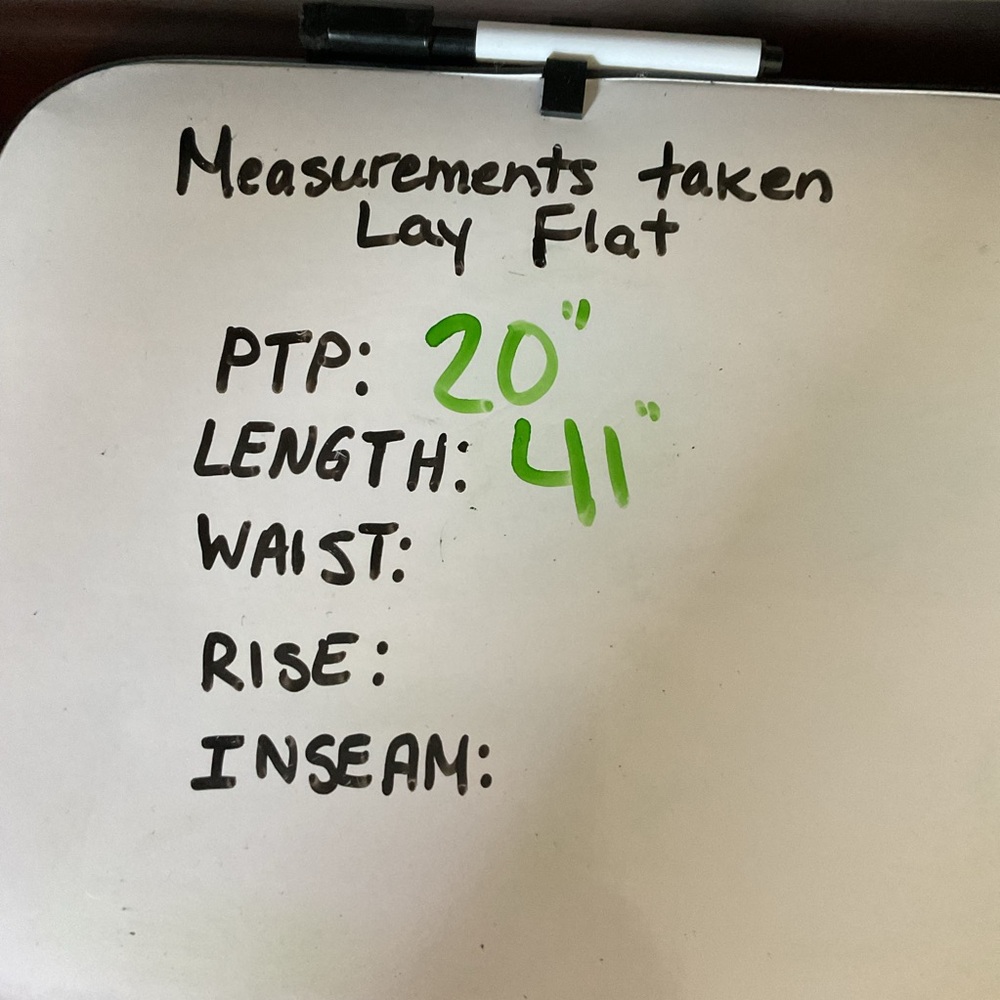 Measurements taken
Lay Flat
PTP: 20"
LENGTH: 41"
WAIST:
RISE:
INSEAM: